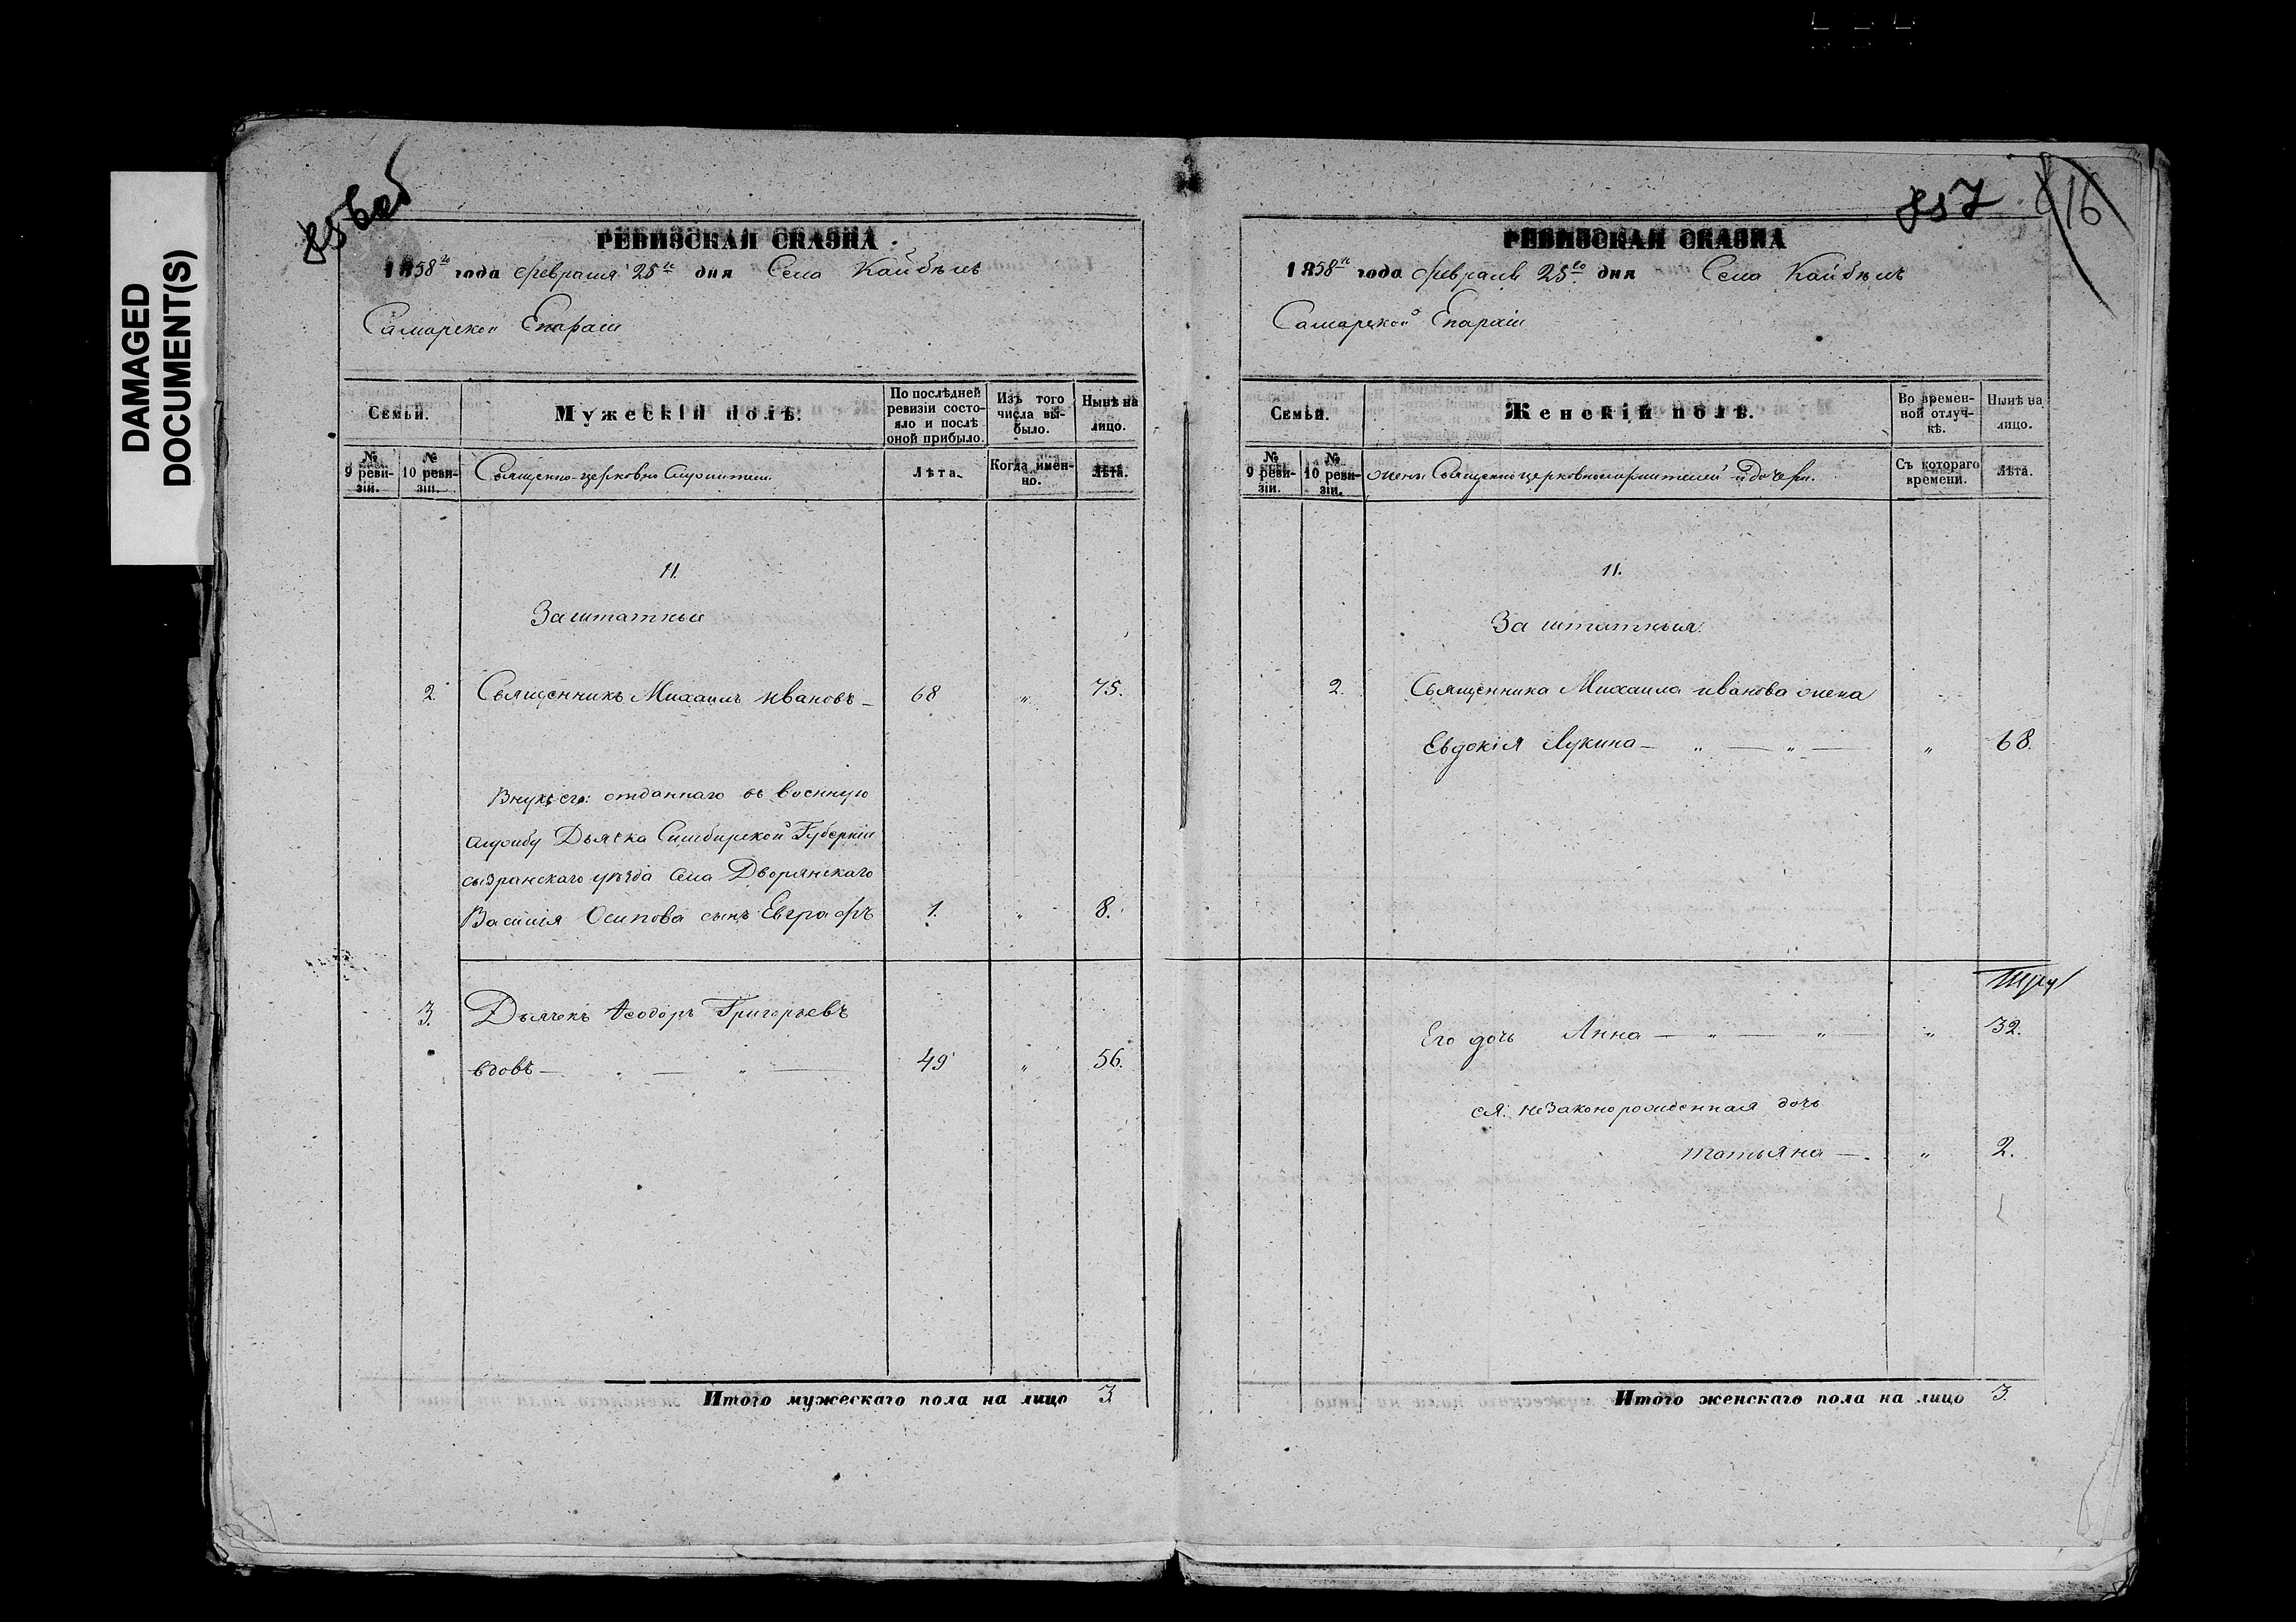 DAMAGED
DOCUMENT(S)
856 об
РЕВИЗСКАЯ СКАЗКА
1858го года февраля 25го дня Села Кайбѣлъ
Самарской Епархіи
Семьи.
Мужескій полъ.
По послѣдней ревизіи состояло и послѣ оной прибыло.
Изъ того числа выбыло.
Нынѣ на лицо.
№ 9 ревизіи.
№ 10 ревизіи.
Священно-церковно служители
Лѣта.
Когда именно.
Лѣта.
11.
Заштатные
2. Священникъ Михаилъ Ивановъ — 68 „ 75.
Внукъ его: отданнаго въ военную
службу Дьячка Симбирской Губерніи
сызранскаго уѣзда села Дворянскаго
Василія Осипова сынъ Евграфъ 1. „ 8.
3. Дьячекъ Ѳеодоръ Григорьевъ
вдовъ — „ — „ — 49 „ 56.
Итого мужескаго пола на лицо 3
857
16
РЕВИЗСКАЯ СКАЗКА
1858го года февраля 25го дня Села Кайбѣлъ
Самарской Епархіи
Семьи.
Женскій полъ.
Во временной отлучкѣ.
Нынѣ на лицо.
№ 9 ревизіи.
№ 10 ревизіи.
жены Священноцерковнослужителей и дочери.
Съ котораго времени.
Лѣта.
11.
За штатныя.
2. Священника Михаила иванова жена
Евдокія Лукина — „ — „ — „ 68.
Его дочь Анна — „ — „ — „ 32.
ея: незаконорожденная дочь
татьяна — „ 2.
Итого женскаго пола на лицо 3.